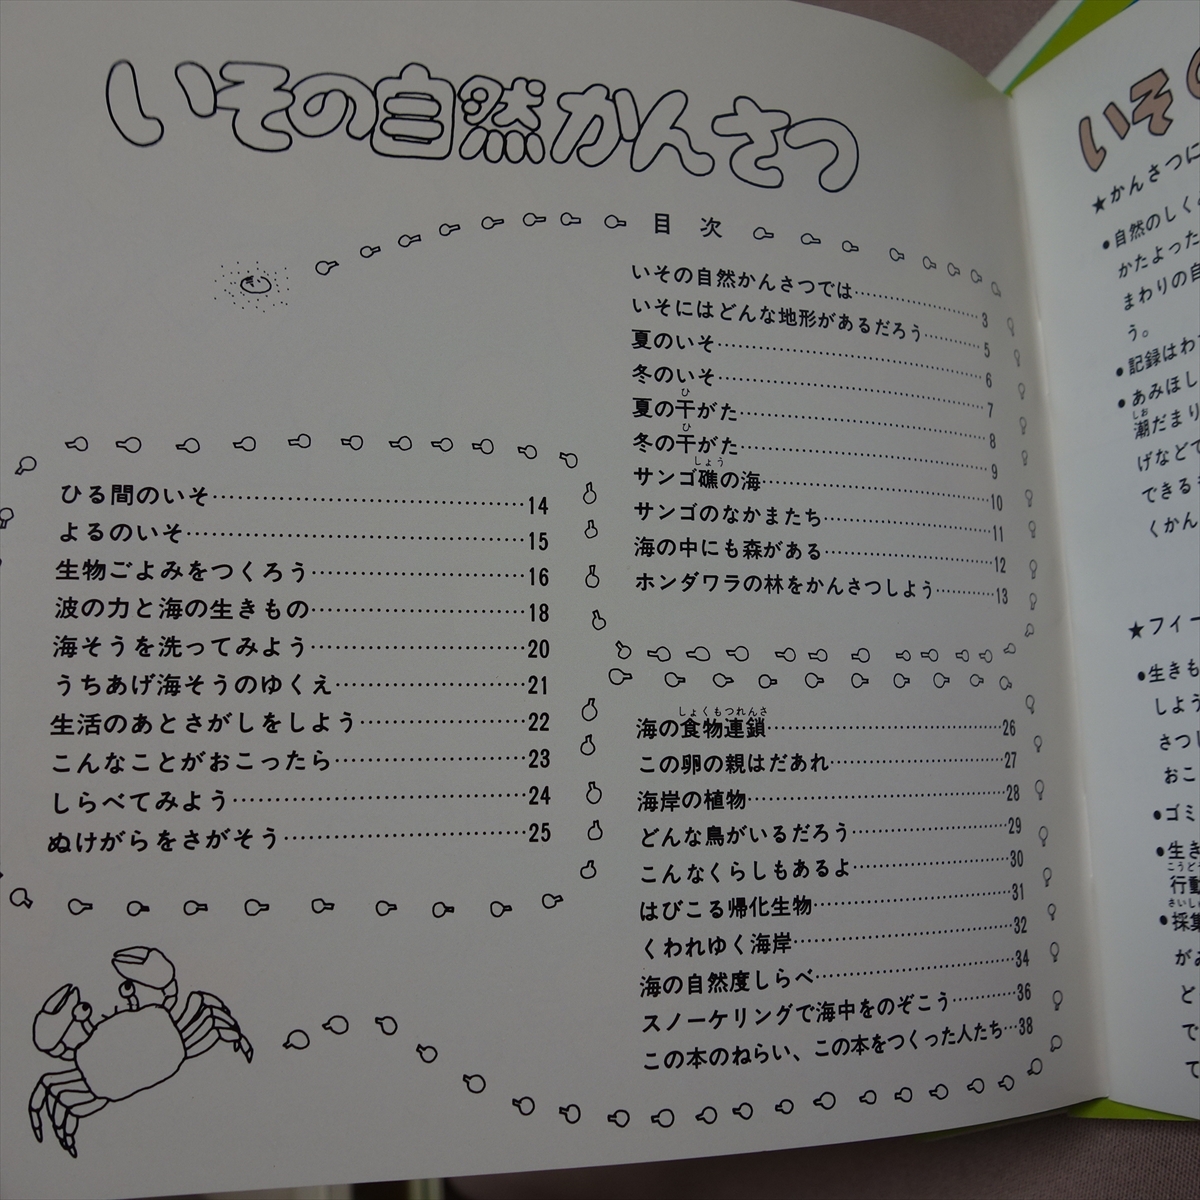 いその自然かんさつ
目次
いその自然かんさつでは…………3
いそにはどんな地形があるだろう…………5
夏のいそ…………6
冬のいそ…………7
夏の干がた…………8
ひ
冬の干がた…………9
ひ
サンゴ礁の海…………10
しょう
サンゴのなかまたち…………11
海の中にも森がある…………12
ホンダワラの林をかんさつしよう…………13
ひる間のいそ…………14
よるのいそ…………15
生物ごよみをつくろう…………16
波の力と海の生きもの…………18
海そうを洗ってみよう…………20
うちあげ海そうのゆくえ…………21
生活のあとさがしをしよう…………22
こんなことがおこったら…………23
しらべてみよう…………24
ぬけがらをさがそう…………25
海の食物連鎖…………26
しょくもつれんさ
この卵の親はだあれ…………27
海岸の植物…………28
どんな鳥がいるだろう…………29
こんなくらしもあるよ…………30
はびこる帰化生物…………31
くわれゆく海岸…………32
海の自然度しらべ…………34
スノーケリングで海中をのぞこう…………36
この本のねらい、この本をつくった人たち…38
いその
★かんさつに
●自然のしくみ
かたよった
まわりの自
う。
●記録はわ
●あみほし
潮だまり
しお
げなどで
できる
くかん
★フィー
●生きも
しよう
さつし
おこ
●ゴミ
●生き
行動
こうどう
●採集
さいしゅ
がみ
ど
で
て